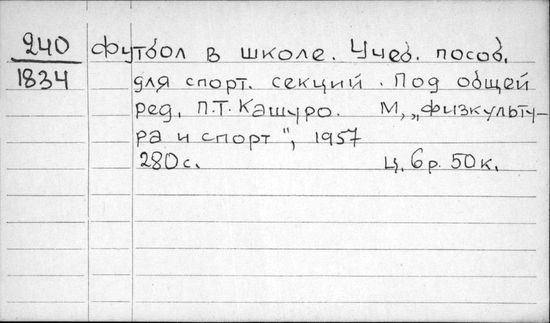 240 Футбол в школе. Учеб. пособ.
1834 для спорт. секций. Под общей
ред. П.Т. Кашуро. М, „физкульту-
ра и спорт", 1957
280с. Ц. 6р. 50к.